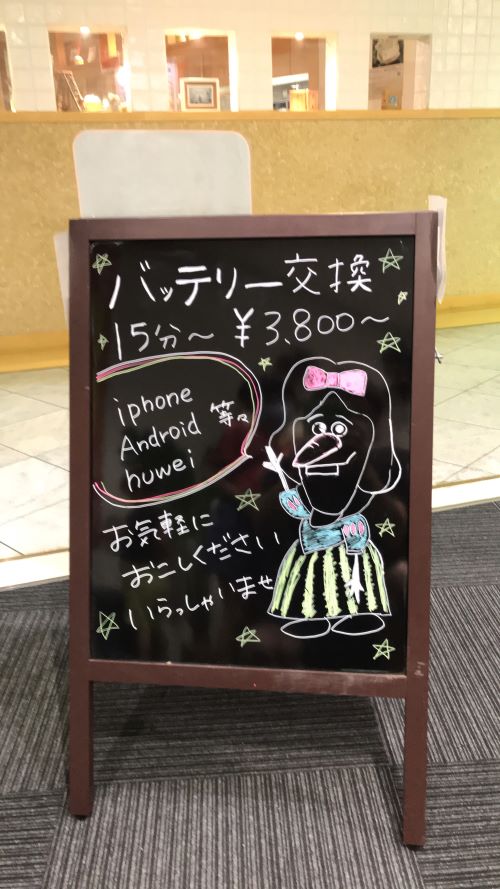 バッテリー交換
15分～ ¥3.800～
iphone
Android 等々
huwei
お気軽に
おこしください
いらっしゃいませ